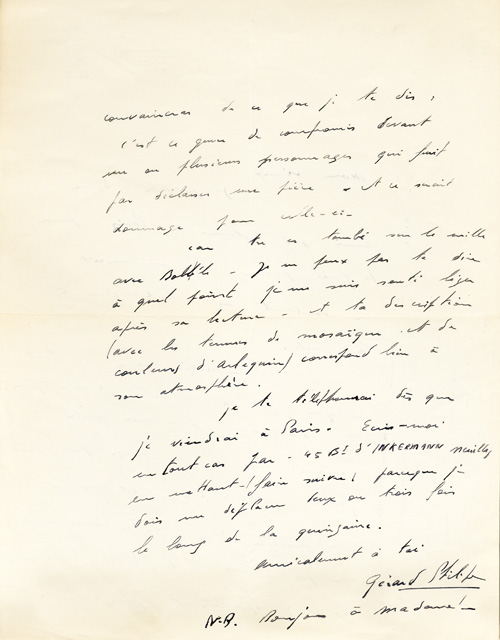 convaincras de ce que je te dis :
c'est ce genre de compromis devant
un ou plusieurs personnages qui finit
par déclasser une pièce - et ce serait
dommage pour celle-ci -
car tu es tombé sur le mille
avec - Je ne peux pas te dire
à quel point je me suis senti léger
après sa lecture - et ta description
(avec les termes de mosaïque et de
couleurs d'Arlequin) correspond bien à
son atmosphère.
je te téléphonerai dès que
je viendrai à Paris - Ecris-moi
en tout cas par - 45 Bd d'INKERMANN Neuilly
en mettant - (faire suivre) parce que je
dois me déplacer deux ou trois fois
le long de la quinzaine.
amicalement à toi
Gérard Philipe
N.B. Bonjour à madame